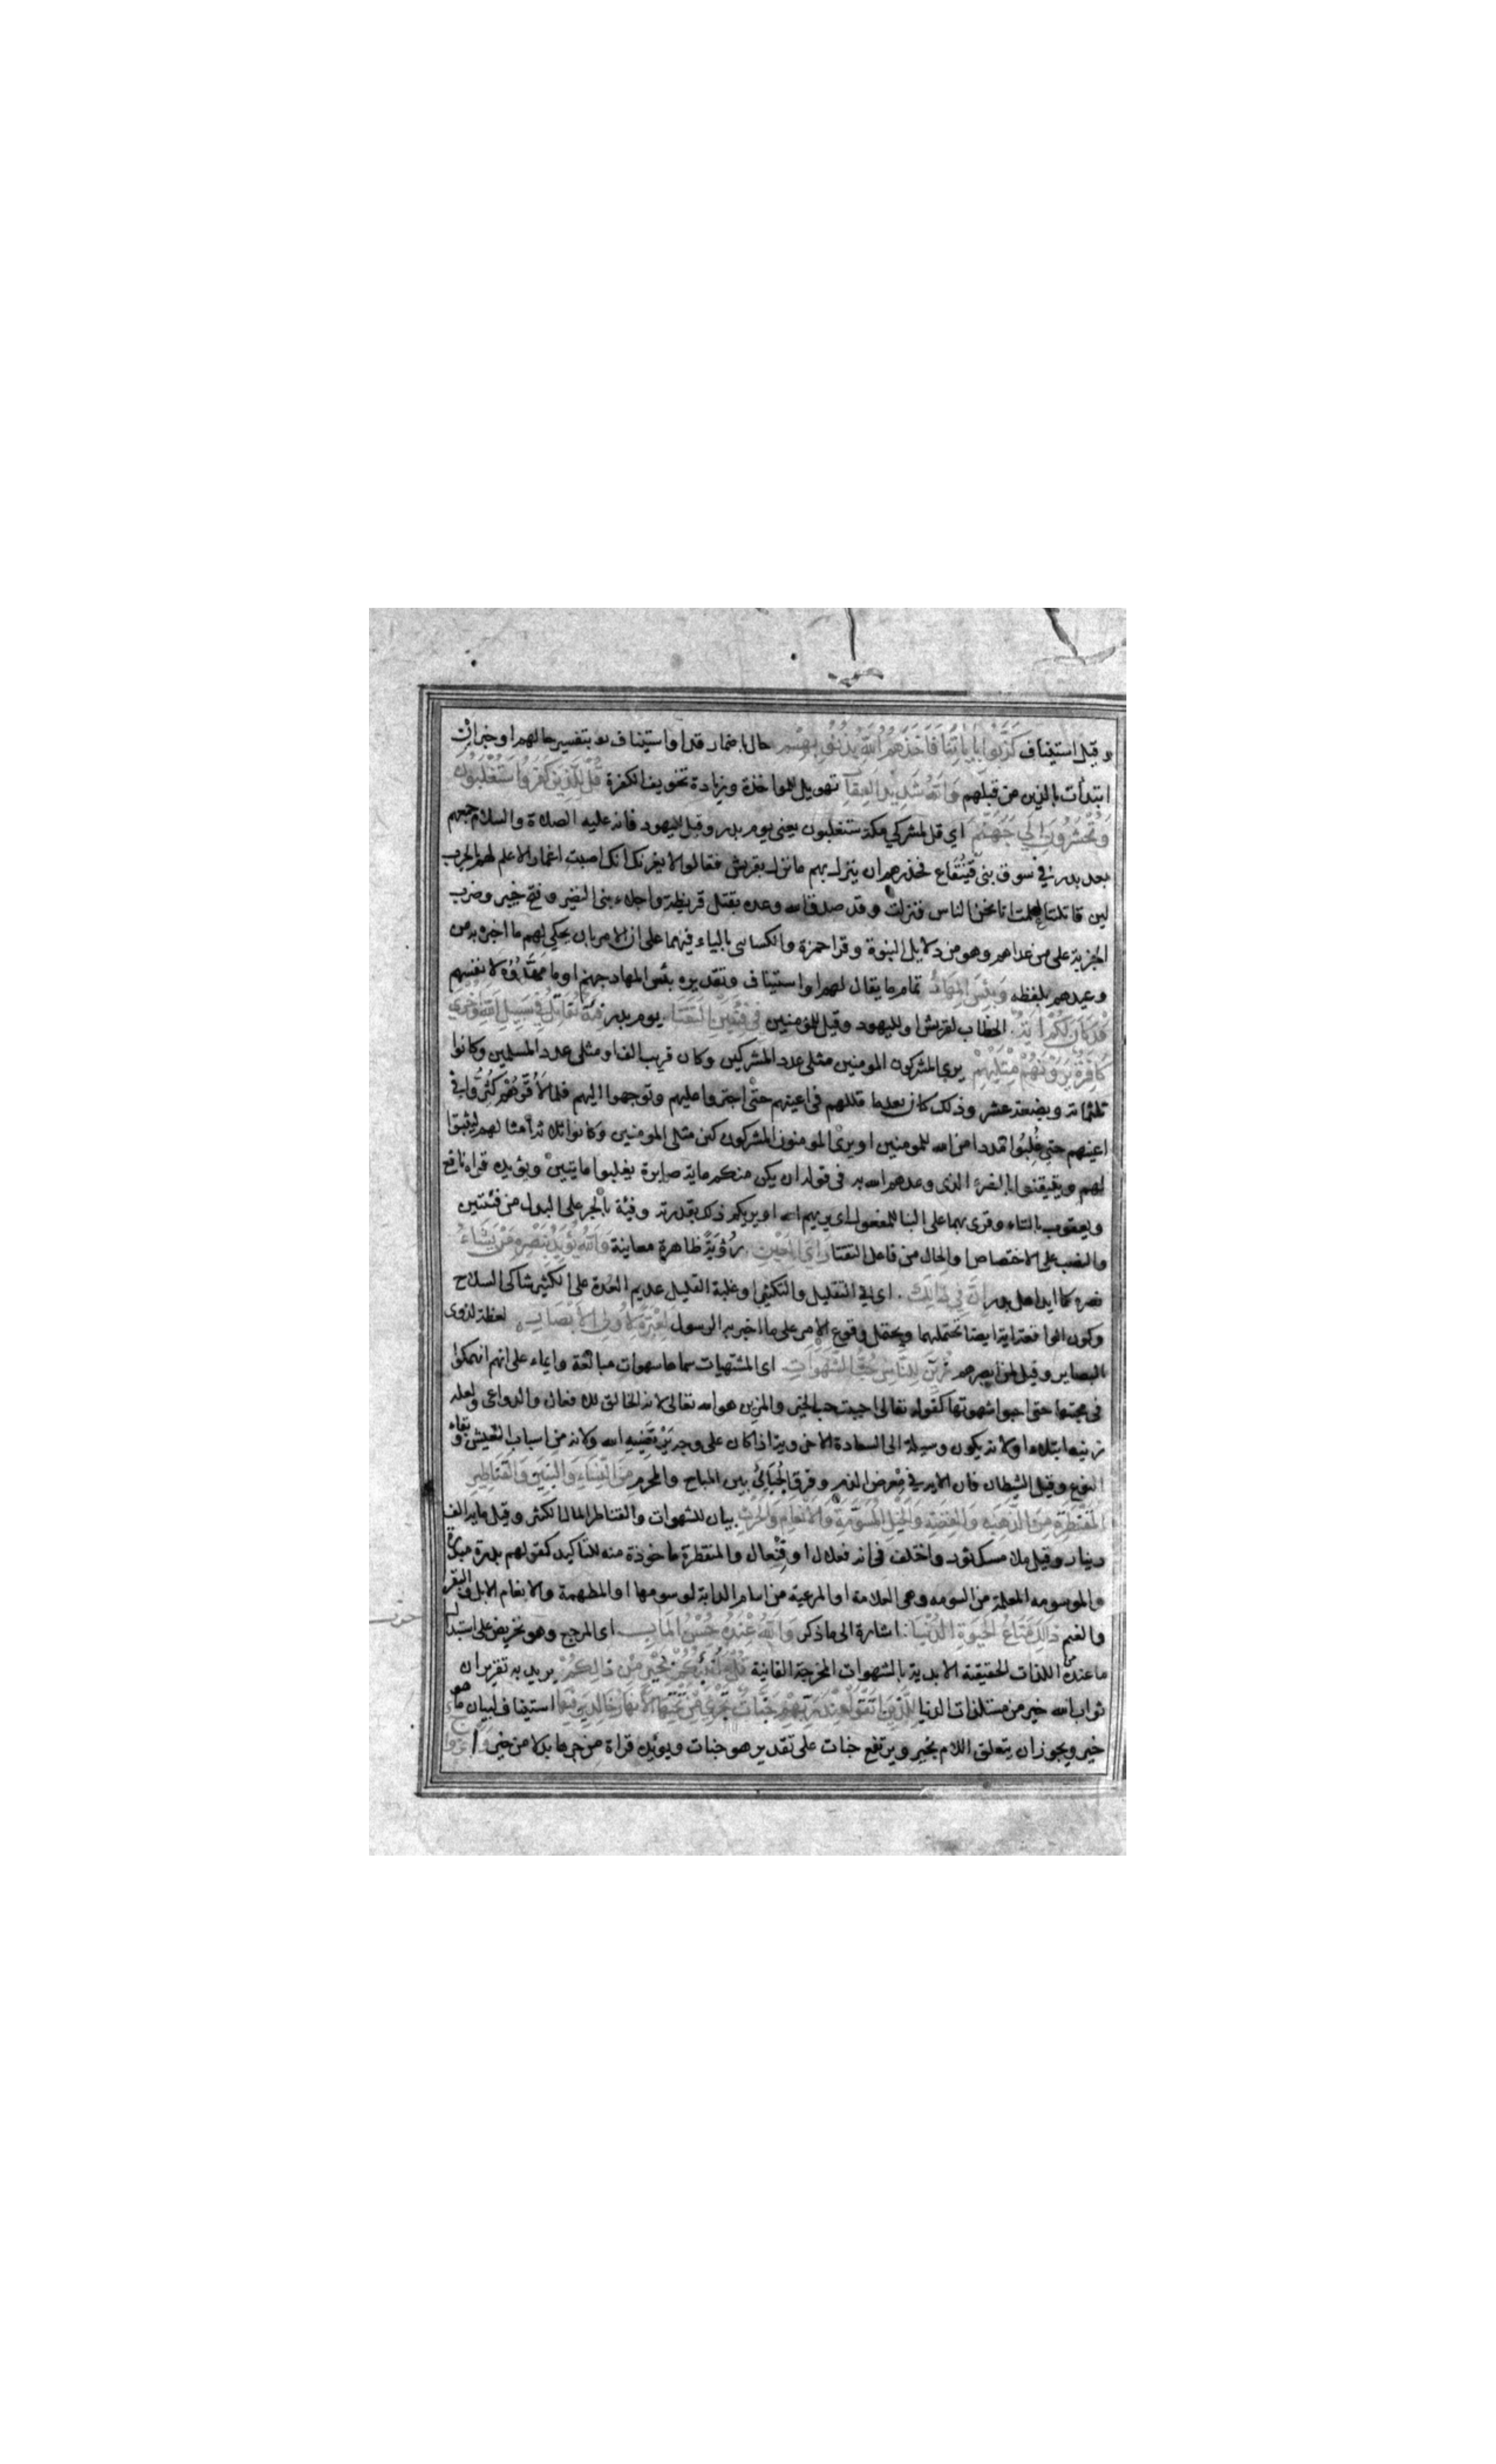 وقيل استيناف كَذَّبُوا بِآيَاتِنَا فَأَخَذَهُمُ اللَّهُ بِذُنُوبِهِمْ حال باضمار قد او استيناف بتفسير حالهم او خبر ان
ابتدأت بالذين من قبلهم وَاللَّهُ شَدِيدُ العِقَابِ تهويل للمواخذة وزيادة تخويف الكفرة قُلْ لِلَّذِينَ كَفَرُوا سَتُغْلَبُونَ
وَتُحْشَرُونَ إِلَى جَهَنَّمَ اي قل لمشركي مكة ستغلبون يعني يوم بدر وقيل لليهود فانه عليه الصلاة والسلام جمعهم
بعد بدر في سوق بني قَيْنُقَاع فحذرهم ان ينزل بهم ما نزل بقريش فقالوا لا يغرنك انك اصبت اغمارا لا علم لهم بالحرب
لين قاتلتنا لعلمت انا نحن الناس فنزلت وقد صدق الله وعده بقتل قريظة واجلاء بني النضير وفتح خيبر وضرب
الجزية على من عداهم وهو من دلايل النبوة وقرا حمزة والكسائى بالياء فيهما على ان الامر بان يحكي لهم ما اخبره به من
وعيدهم بلفظه وَبِئْسَ المِهَادُ تمام ما يقال لهم او استيناف وتقديره بئس المهاد جهنم او ما مَهَّدُوْه لانفسهم
قَدْ كَانَ لَكُمْ آيَةٌ الخطاب لقريش او لليهود وقيل للمومنين فِي فِئَتَيْنِ الْتَقَتَا يوم بدر فِئَةٌ تُقَاتِلُ فِي سَبِيلِ اللَّهِ وَأُخْرَى
كَافِرَةٌ يَرَوْنَهُمْ مِثْلَيْهِمْ يرى المشركون المومنين مثلي عدد المشركين وكان قريب الف او مثلي عدد المسلمين وكانوا
ثلثماية وبضعة عشر وذلك كان بعد ما قللهم في اعينهم حتى اجتروا عليهم وتوجهوا اليهم فلما لاقَوْهُمْ كُثِّرُوا في
اعينهم حتى غُلِبُوا مددا من الله للمومنين او يرى المومنون المشركون مثلي المومنين وكانوا ثلاثة امثالهم ليثبتوا
لهم ويتيقنوا بالنصر الذي وعدهم الله به في قوله ان يكن منكم ماية صابرة يغلبوا مايتين ويؤيده قراه نافع
ويعقوب بالتاء وقرى بهما على البنا للمفعول اي يريهم الله او يريكم ذلك بقدرته وفئة بالجر على البدل من فئتين
والنصب على الاختصاص او الحال من فاعل التقتا رَأْيَ الْعَيْنِ رُؤْيَةً ظاهرة معاينة وَاللَّهُ يُؤَيِّدُ بِنَصْرِهِ مَنْ يَشَاءُ
نصره كما ايد اهل بدر إِنَّ فِي ذَلِكَ اى في التقليل والتكثير او غلبة القليل عديم العُدة على الكثير شاكى السلاح
وكون الواقعة اية ايضا يحتملهما ويحتمل وقوع الامر على ما اخبر به الرسول لَعِبْرَةً لِأُولِي الأَبْصَارِ لعظة لذوى
البصاير وقيل لمن ابصرهم زُيِّنَ لِلنَّاسِ حُبُّ الشَّهَوَاتِ اى المشتهيات سماها شهوات مبالغة وايماء على انهم انهمكوا
في محبتها حتى احبوا شهوتها كقوله تعالى احببت حب الخير والمزين هو الله تعالى لانه الخالق للافعال والدواعى ولعله
زينه ابتلاء او لانه يكون وسيلة الى السعادة الاخروية اذا كان على وجه يرتضيه الله ولانه من اسباب التعيش وبقاء
النوع وقيل الشيطان فان الاية في مَعْرض الذم وفرق الجُبَّائي بين المباح والمحرم مِنَ النِّسَاءِ وَالْبَنِينَ وَالْقَنَاطِيرِ
المُقَنْطَرَةِ مِنَ الذَّهَبِ وَالْفِضَّةِ وَالْخَيْلِ الْمُسَوَّمَةِ وَالْأَنْعَامِ وَالْحَرْثِ بيان للشهوات والقنطار المال الكثير وقيل ماية الف
دينار وقيل ملا مسك ثور واختلف في انه فعلال او فِنْعال والمقنطرة ماخوذة منه للتاكيد كقولهم بدرة مبدرة
والموسومه المعلمة من السومه وهي العلامة او المرعية من اسام الدابة لو سومها او المطهمة والانعام الابل والبقر
والغنم ذَلِكَ مَتَاعُ الْحَيَوةِ الدُّنْيَا اشارة الى ما ذكر وَاللَّهُ عِنْدَهُ حُسْنُ الْمَآبِ اى المرجع وهو تحريض على استبدال
ما عنده من اللذات الحقيقية الابدية بالشهوات المخدجة الفانية قُلْ أَؤُنَبِّئُكُمْ بِخَيْرٍ مِنْ ذَلِكُمْ يريد به تقرير ان
ثواب الله خير من مستلذات الدنيا لِلَّذِينَ اتَّقَوْا عِنْدَ رَبِّهِمْ جَنَّاتٌ تَجْرِي مِنْ تَحْتِهَا الْأَنْهَارُ خَالِدِينَ فِيهَا استيناف لبيان ما هو
خير ويجوز ان يتعلق اللام بخير ويرتفع جنات على تقدير هو جنات ويؤيده قراة من جرها بدلا من خير